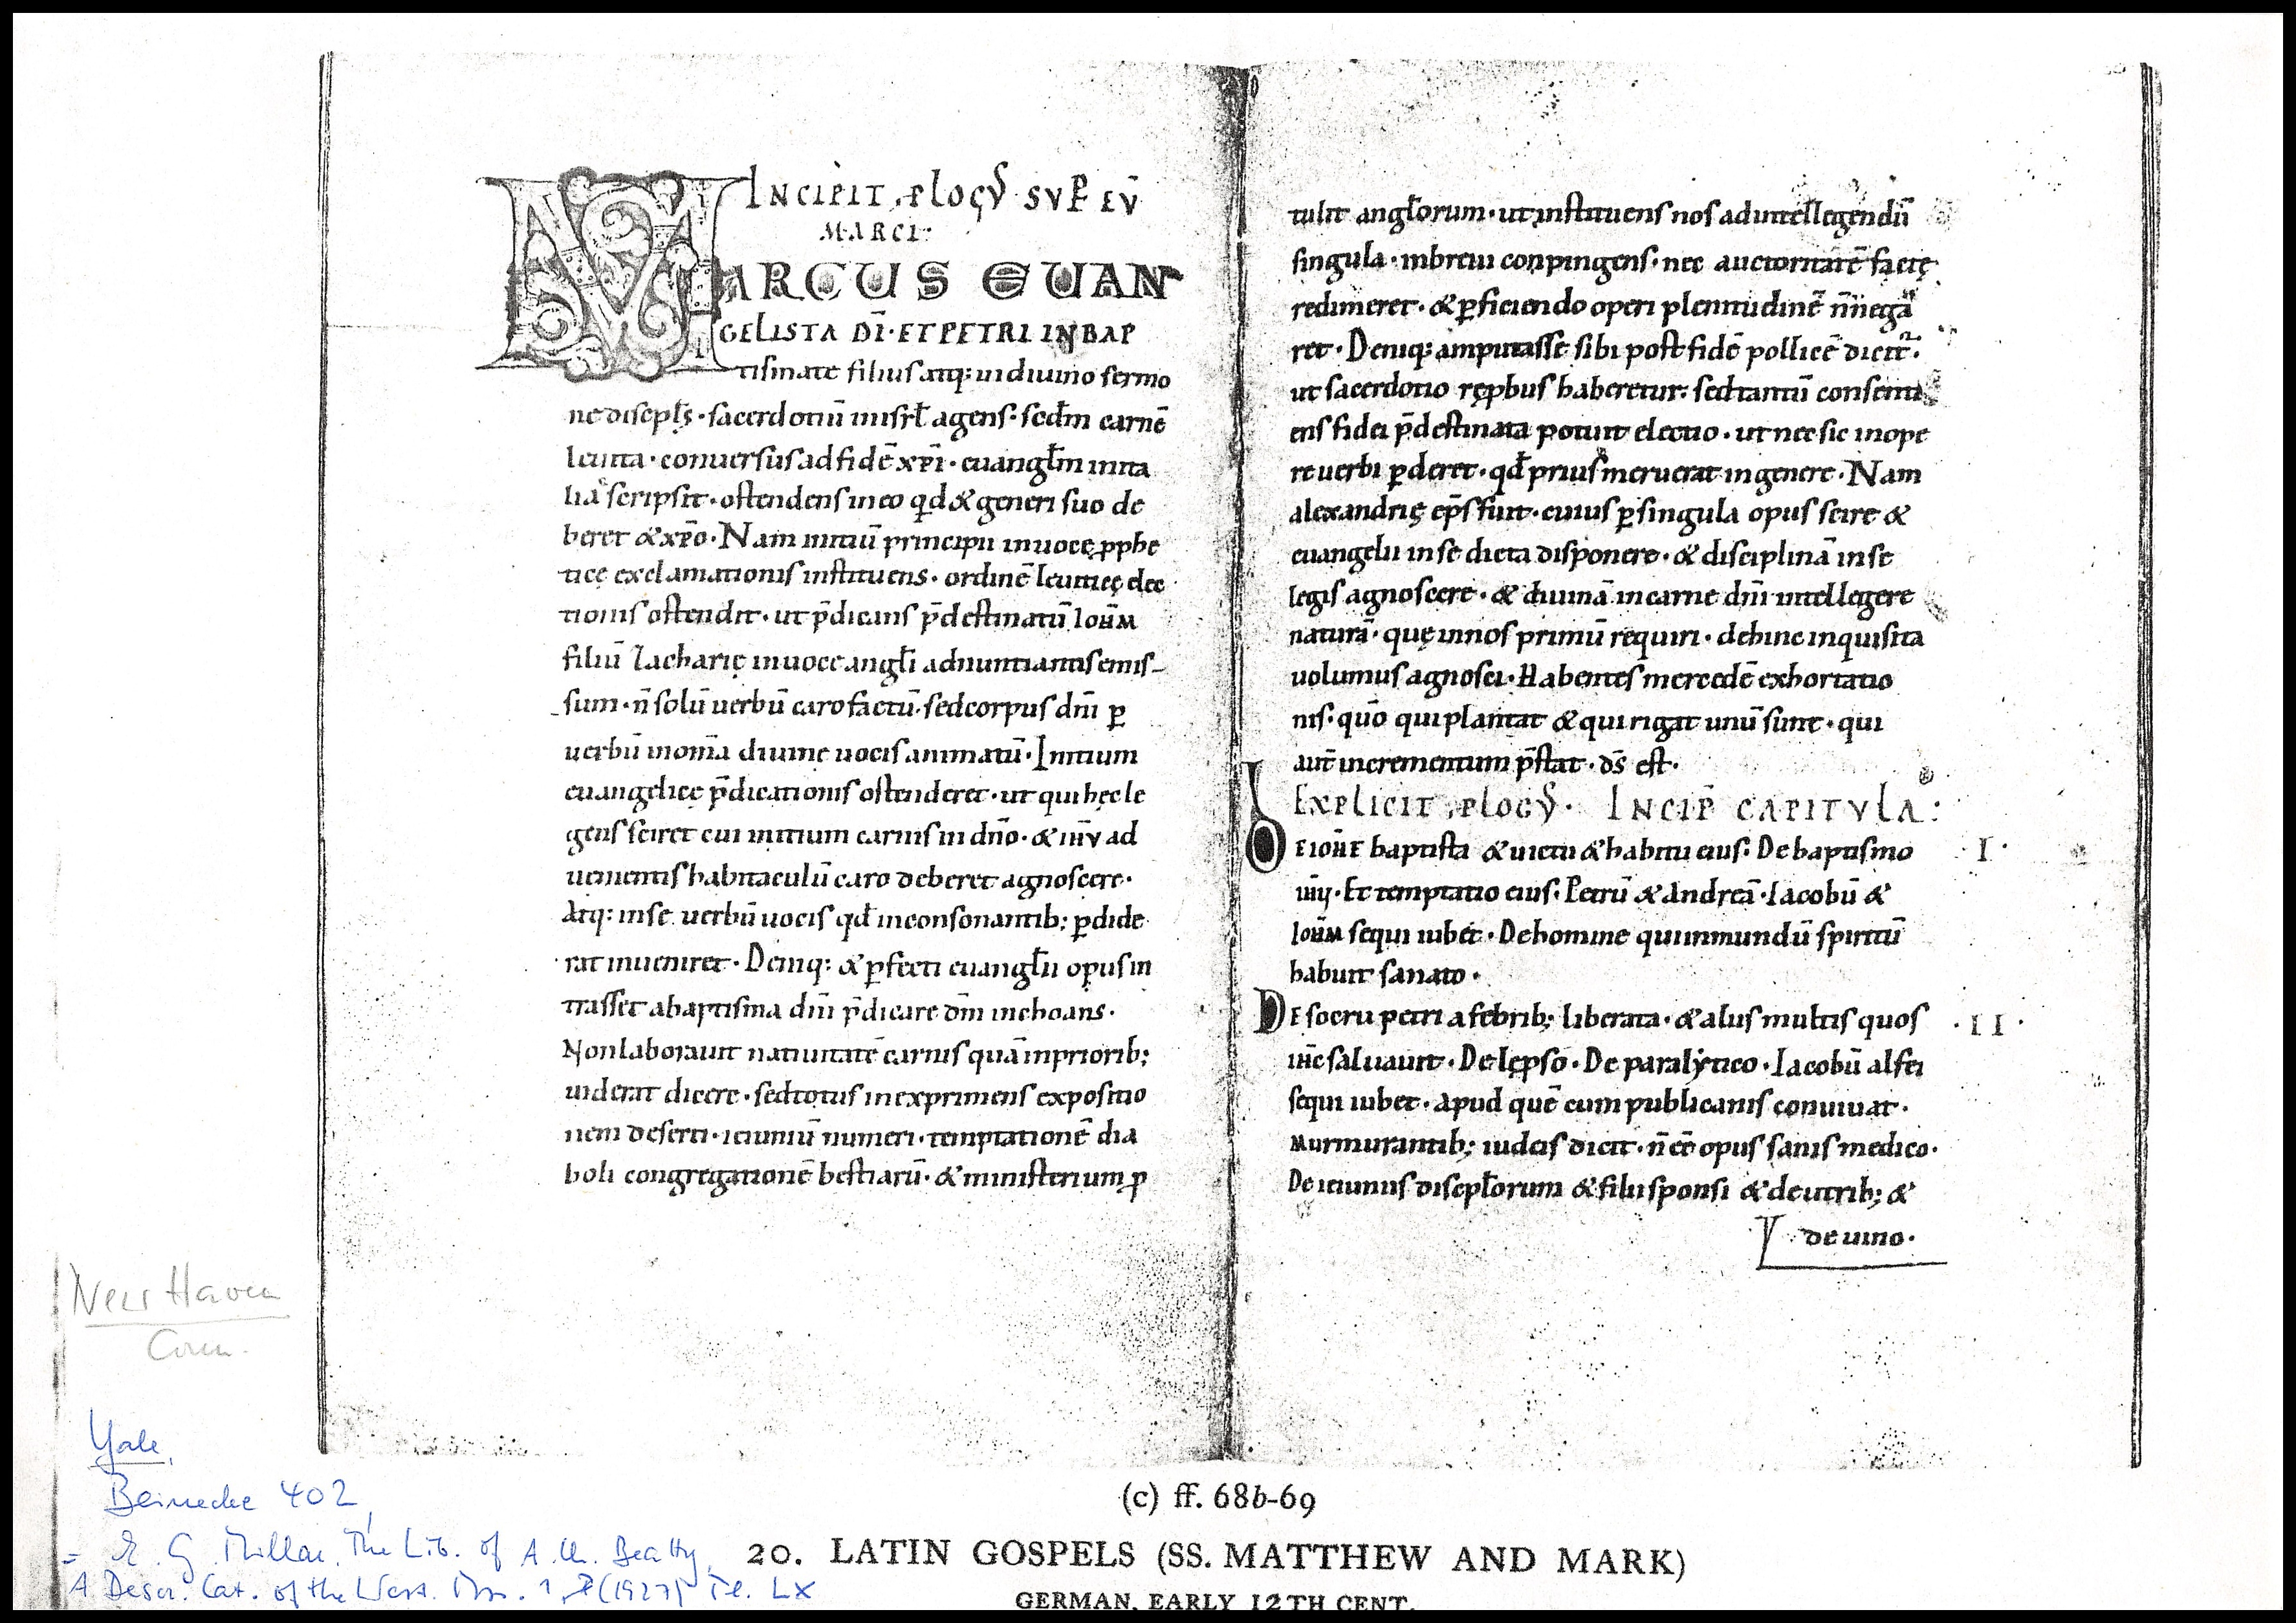 INCIPIT PLOGꝰ SVP̄ EV̄
MARCI:
MARCUS EUAN
GELISTA DI·ET PETRI IN BAP
tismate filius atq: in diuino sermo
ne discipl̄s· sacerdotiū in isrl̄ agens· scd̄m carnē
leuita· conuersus ad fidē xp̄i· euangl̄m in ita
lia scripsit· ostendens in eo qd & generi suo de
beret & xp̄o· Nam initiū principii in uocę ꝓphe
ticę exclamationis instituens· ordinē leuiticę elec
tionis ostendit· ut p̄dicans p̄destinatū IOH̄M
filiū Zacharię in uoce angl̄i adnuntiantis emis-
sum· n̄ solū uerbū caro factū· sed corpus dn̄i ꝑ
uerbū in om̄ia diuinę uocis animatū· Initium
euangelicę p̄dicationis ostenderet· ut qui hęc le
gens sciret cui initium carnis in dn̄o· & ih̄u ad
uenientis habitaculū caro deberet agnoscere·
Atq: in se uerbū uocis qd̄ in consonantib; ꝑdide
rat inueniret· Deniq: & ꝑfecti euangl̄ii opus in
trasset a baptisma dn̄i p̄dicare dm̄ inchoans·
Non laborauit natiuitatē carnis quā in priorib;
uiderat dicere· sed totus in exprimens expositio
nem deserti· ieiuniū numeri· temptationē dia
boli congregationē bestiarū· & ministerium ꝓ
tulit angl̄orum· ut instituens nos ad intellegendū
singula· in breui conpingens· nec auctoritatē factę
redimeret· & ꝑficiendo operi plenitudinē n̄ nega
ret· Deniq: amputasse sibi post fidē pollicē dicit̄·
ut sacerdotio rępbus haberetur· sed tantū consenti
ens fidei p̄destinata potuit electio· ut nec sic in ope
re uerbi ꝑderet· qd̄ prius meruerat in genere· Nam
alexandrię ep̄s fuit· cuius ꝑ singula opus scire &
euangelii in se dicta disponere· & disciplinā in se
legis agnoscere· & diuinā in carne dn̄i intellegere
naturā· quę in nos primū requiri· dehinc inquisita
uolumus agnosci· Habentes mercedē exhortatio
nis· quō qui plantat & qui rigat unū sunt· qui
aut̄ incrementum p̄stat· ds̄ est·
EXPLICIT PLOGꝰ· INCIP̄ CAPITVLA:
DE IOH̄E baptista & uictu & habitu eius· De baptismo ·I·
ih̄u· Et temptatio eius· Petrū & Andreā· Iacobū &
IOH̄M sequi iubet· De homine qui inmundū spiritū
habuit sanato·
DE socru petri a febrib; liberata· & aliis multis quos ·II·
ih̄c saluauit· De lępso· De paralytico· Iacobū alfei
sequi iubet· apud quē cum publicanis conuiuat·
Murmurantib; iudeis dicit· n̄ eē opus sanis medico·
De ieiuniis discipl̄orum & filii sponsi & de utrib; &
de uino·
New Haven
Conn.
Yale,
Beinecke 402,
= E. G. Millar, The Lib. of A. Ch. Beatty,
A Descr. Cat. of the West. Mss. 1, (1927) Pl. LX
(c) ff. 68b-69
20. LATIN GOSPELS (SS. MATTHEW AND MARK)
GERMAN, EARLY 12TH CENT.